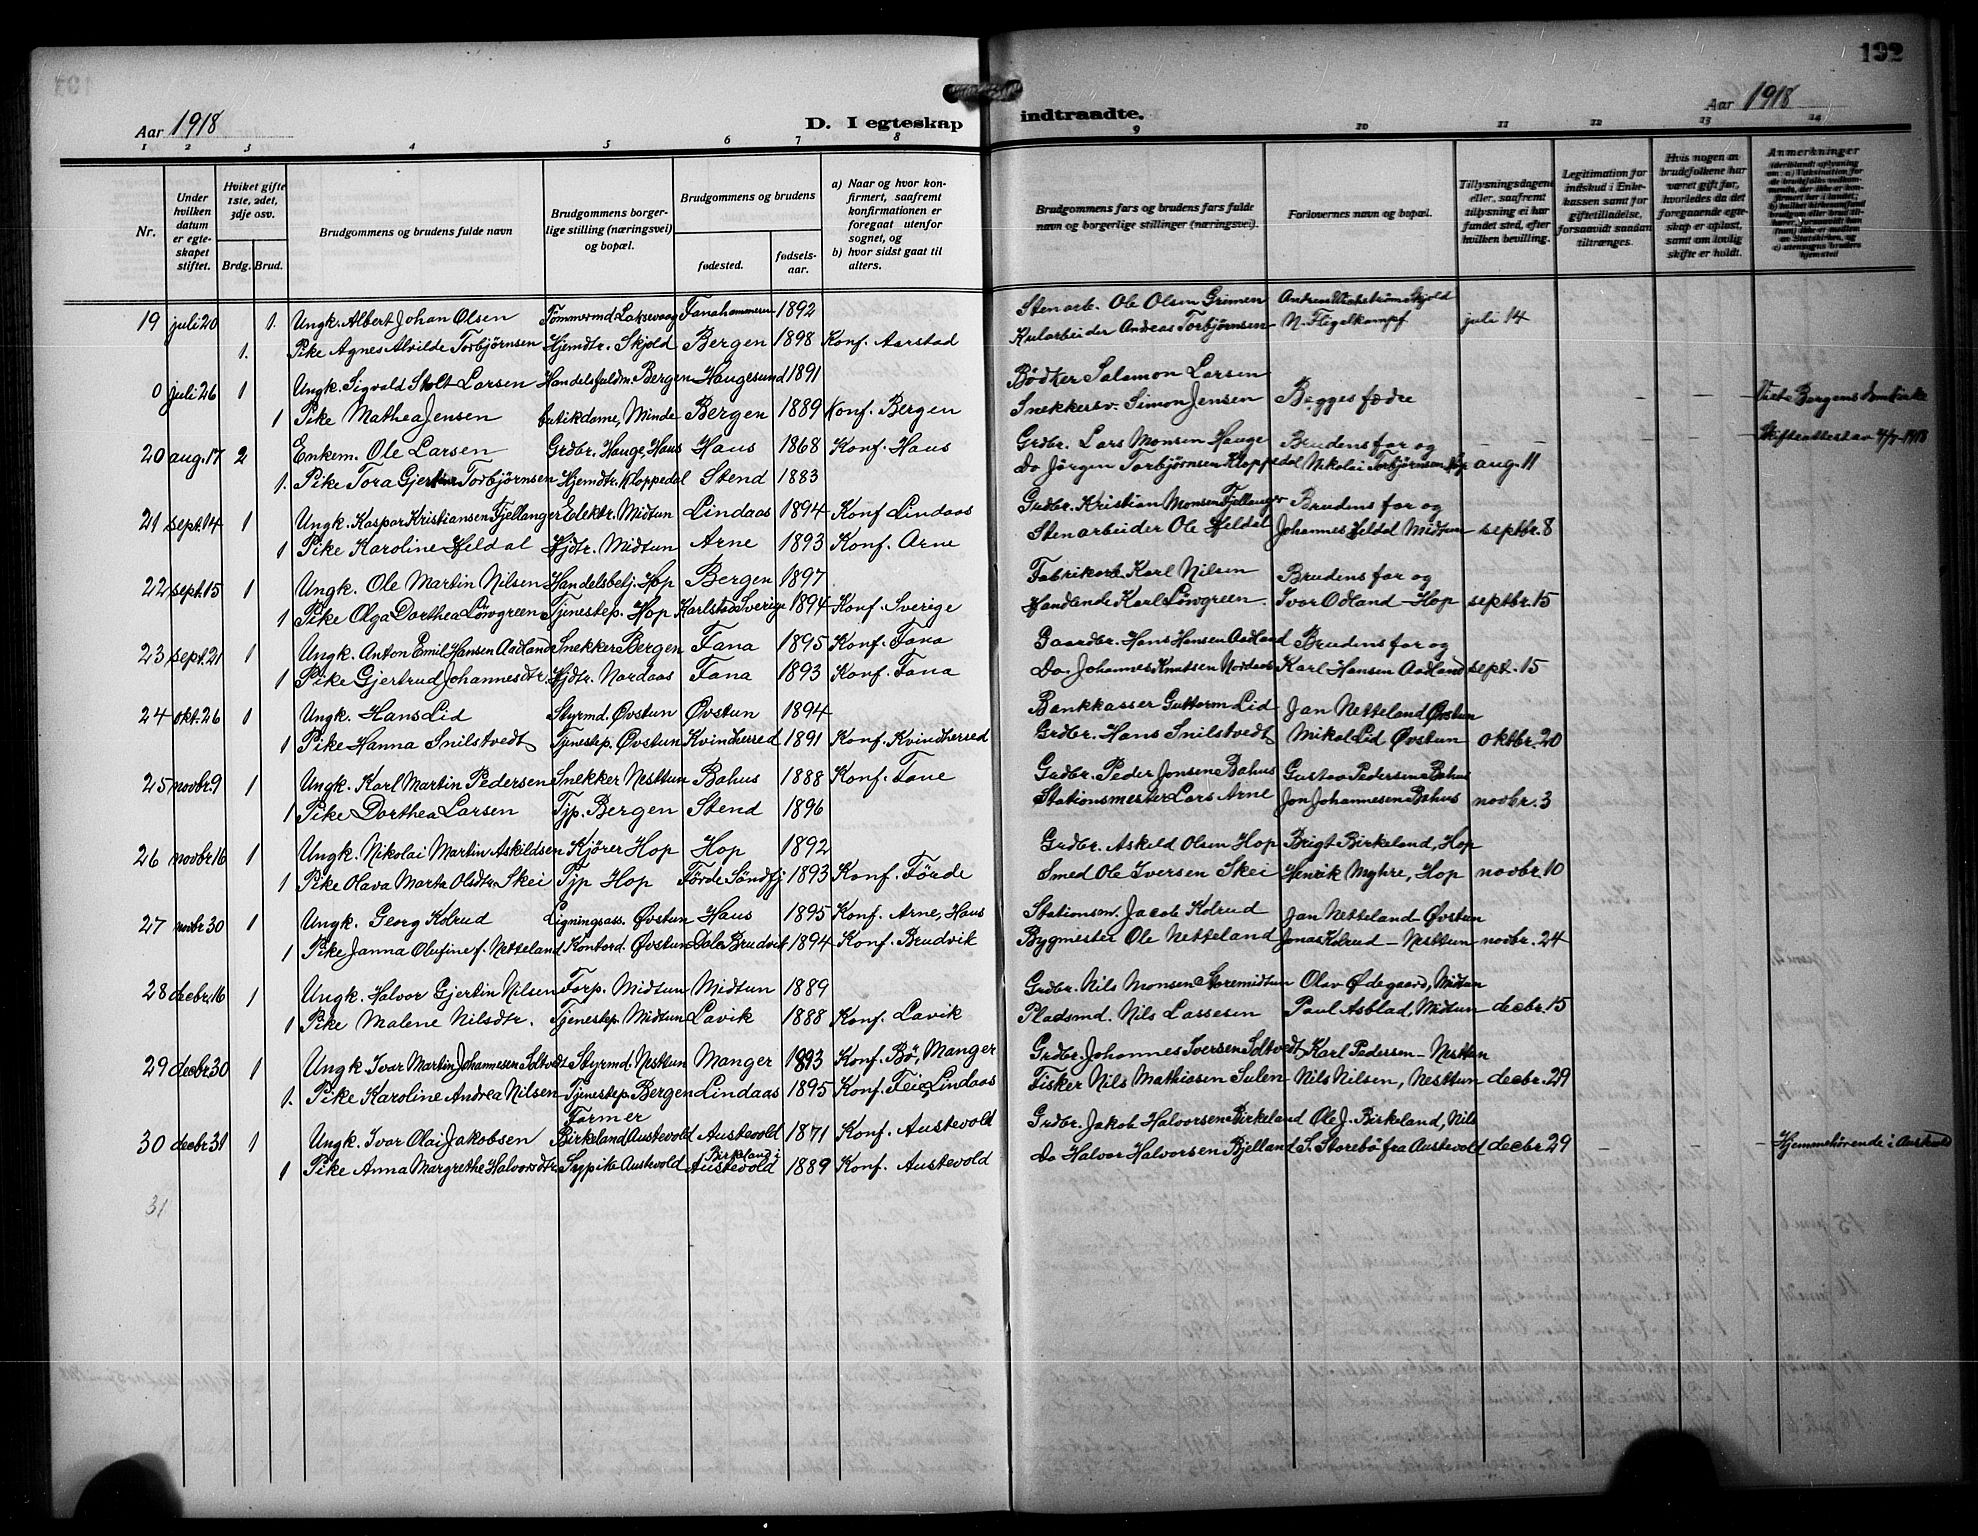 192
Aar 1918
D. I egteskap indtraadte.
Aar 1918
1 2 3 4 5 6 7 8 9 10 11 12 13 14
Nr.
Under hvilken datum er egteskapet stiftet.
Hviket gifte 1ste, 2det, 3dje osv.
Brdg. Brud.
Brudgommens og brudens fulde navn
Brudgommens borgerlige stilling (næringsvei) og bopæl.
Brudgommens og brudens
fødested.
fødselsaar.
a) Naar og hvor konfirmert, saafremt konfirmationen er foregaat utenfor sognet, og
b) hvor sidst gaat til alters.
Brudgommens fars og brudens fars fulde navn og borgerlige stillinger (næringsvei).
Forlovernes navn og bopæl.
Tillysningsdagene eller, saafremt tillysning ei har fundet sted, efter hvilken bevilling.
Legitimation for indskud i Enkekassen samt for giftetilladelse, forsaavidt saadan tiltrænges.
Hvis nogen av brudefolkene har været gift før, hvorledes da det foregaaende egteskap er opløst, samt om lovlig skifte er holdt.
Anmerkninger
19 juli 20 1. Ungk. Albert Johan Olsen Tømmermd. Laksevaag Fanahammeren 1892 Stenarb. Ole Olsen Grimen Skjold
1. Pike Agnes Alvilde Torbjørnsen Hjemdtr. Skjold Bergen 1898 Konf. Aarstad Kularbeider Andreas Torbjørnsen N. Fligelkampf juli 14
0 juli 26 1 Ungk. Sigvald Stolt Larsen Handelsfuldm. Bergen Haugesund 1891 Bødker Salamon Larsen
1 Pike Mathea Jensen butikdame, Minde Bergen 1889 Konf. Bergen Snekkersv. Simon Jensen Begges fædre – – Viet i Bergens Domkirke
20 aug. 17 2 Enkem. Ole Larsen Grdbr. Hauge, Haus Haus 1868 Konf. Haus Grdbr. Lars Monsen Hauge Brudens far og – – – Skifteattest av 4/7-1918
1. Pike Tora Gjertine Torbjørnsen Hjemdtr. Kloppedal Stend 1883 Do Jørgen Torbjørnsen Kloppedal Nikolai Torbjørnsen Hop aug. 11
21 sept. 14 1 Ungk. Kaspar Kristiansen Fjellanger Elektr. Midtun Lindaas 1894 Konf Lindaas Grdbr. Kristian Monsen Fjellanger Brudens far og
1 Pike Karoline Heldal Hjdtr. Midtun Arne 1893 Konf. Arne Stenarbeider Ole Heldal Johannes Heldal Midtun septbr. 8
22 sept. 15 1 Ungk. Ole Martin Nilsen Handelsbetj. Hop Bergen 1897 Fabrikarb. Karl Nilsen Brudens far og
1 Pike Olga Dorthea Löwgreen Tjenestep. Hop Karlstad Sverige 1894 Konf. Sverige Handlende Karl Löwgreen. Ivar Odland – Hop septbr. 15
23 sept. 21 1 Ungk. Anton Emil Hansen Aadland Snekker Bergen Fana 1895 Konf. Fana Gaardbr. Hans Hansen Aadland Brudens far og
1 Pike Gjertrud Johannesdtr. Hjdtr. Nordaas Fana 1893 Konf. Fana Do Johannes Knutsen Nordaas Karl Hansen Aadland sept. 15
24 okt. 26 1 Ungk. Hans Lid Styrmd. Øvstun Øvstun 1894 Bankkasser Guttorm Lid Jan Netteland Øvstun
1 Pike Hanna Snilstvedt Tjenestep. Øvstun Kvindherred 1891 Konf. Kvindherred Grdbr. Hans Snilstvedt Mikal Lid Øvstun oktbr. 20
25 novbr. 9 1 Ungk. Karl Martin Pedersen Snekker Nesttun Bahus 1888 Konf. Fane Grdbr. Peder Jonsen Bahus Gustav Pedersen Bahus
1 Pike Dorthea Larsen Tjp. Bergen Stend 1896 Stationsmester Lars Arne Jon Johannesen Bahus novbr. 3
26 novbr 16 1 Ungk. Nikolai Martin Askildsen Kjører Hop Hop 1892 Grdbr. Askeld Olsen Hop Brigt Birkeland, Hop
1 Pike Olava Marta Olsdtr. Skei Tjp Hop Førde Söndfj 1893 Konf. Førde Smed Ole Iversen Skei Henrik Myhre, Hop novbr. 10
27 novbr 30 1 Ungk. Georg Kolrud Ligningsass. Øvstun Haus 1895 Konf. Arne, Haus Stationsm. Jacob Kolrud Jan Netteland Øvstun
1 Pike Janna Olufine f. Netteland Kontord. Øvstun Dale Brudvik 1894 Konf. Brudvik Bygmester Ole Netteland Jonas Kolrud – Nesttun novbr. 24
28 decbr. 16 1 Ungk. Halvor Gjertin Nilsen Forp. Midtun Midtun 1889 Grdbr. Nils Monsen Storemidtun Olav Ødegaard, Midtun
1 Pike Malene Nilsdtr. Tjenestep. Midtun Lavik 1888 Konf. Lavik Pladsmd. Nils Lassesen Paul Asblad, Midtun decbr. 15
29 decbr 30 1 Ungk. Ivar Martin Johannesen Soltvedt Styrmd. Nesttun Manger 1893 Konf. Bø, Manger Grdbr. Johannes Iversen Soltvedt Karl Pedersen – Nesttun
1. Pike Karoline Andrea Nilsen Tjenestep. Bergen Lindaas 1895 Konf. Feie, Lindaas Fisker Nils Mathiasen Sulen Nils Nilsen, Nesttun decbr. 29
30 decbr 31 1 Ungk. Ivar Olai Jakobsen Former Birkeland Austevold Austevold 1871 Konf. Austevold Grdbr. Jakob Halvorsen Birkeland Ole J. Birkeland, Nils
1 Pike Anna Margrethe Halvorsdtr Sypike Austevold Birkeland i Austevold 1889 Konf. Austevold Do Halvor Halvorsen Bjelland S. Storebö fra Austevold decbr 29 – – – Hjemmehørende i Austevold
31